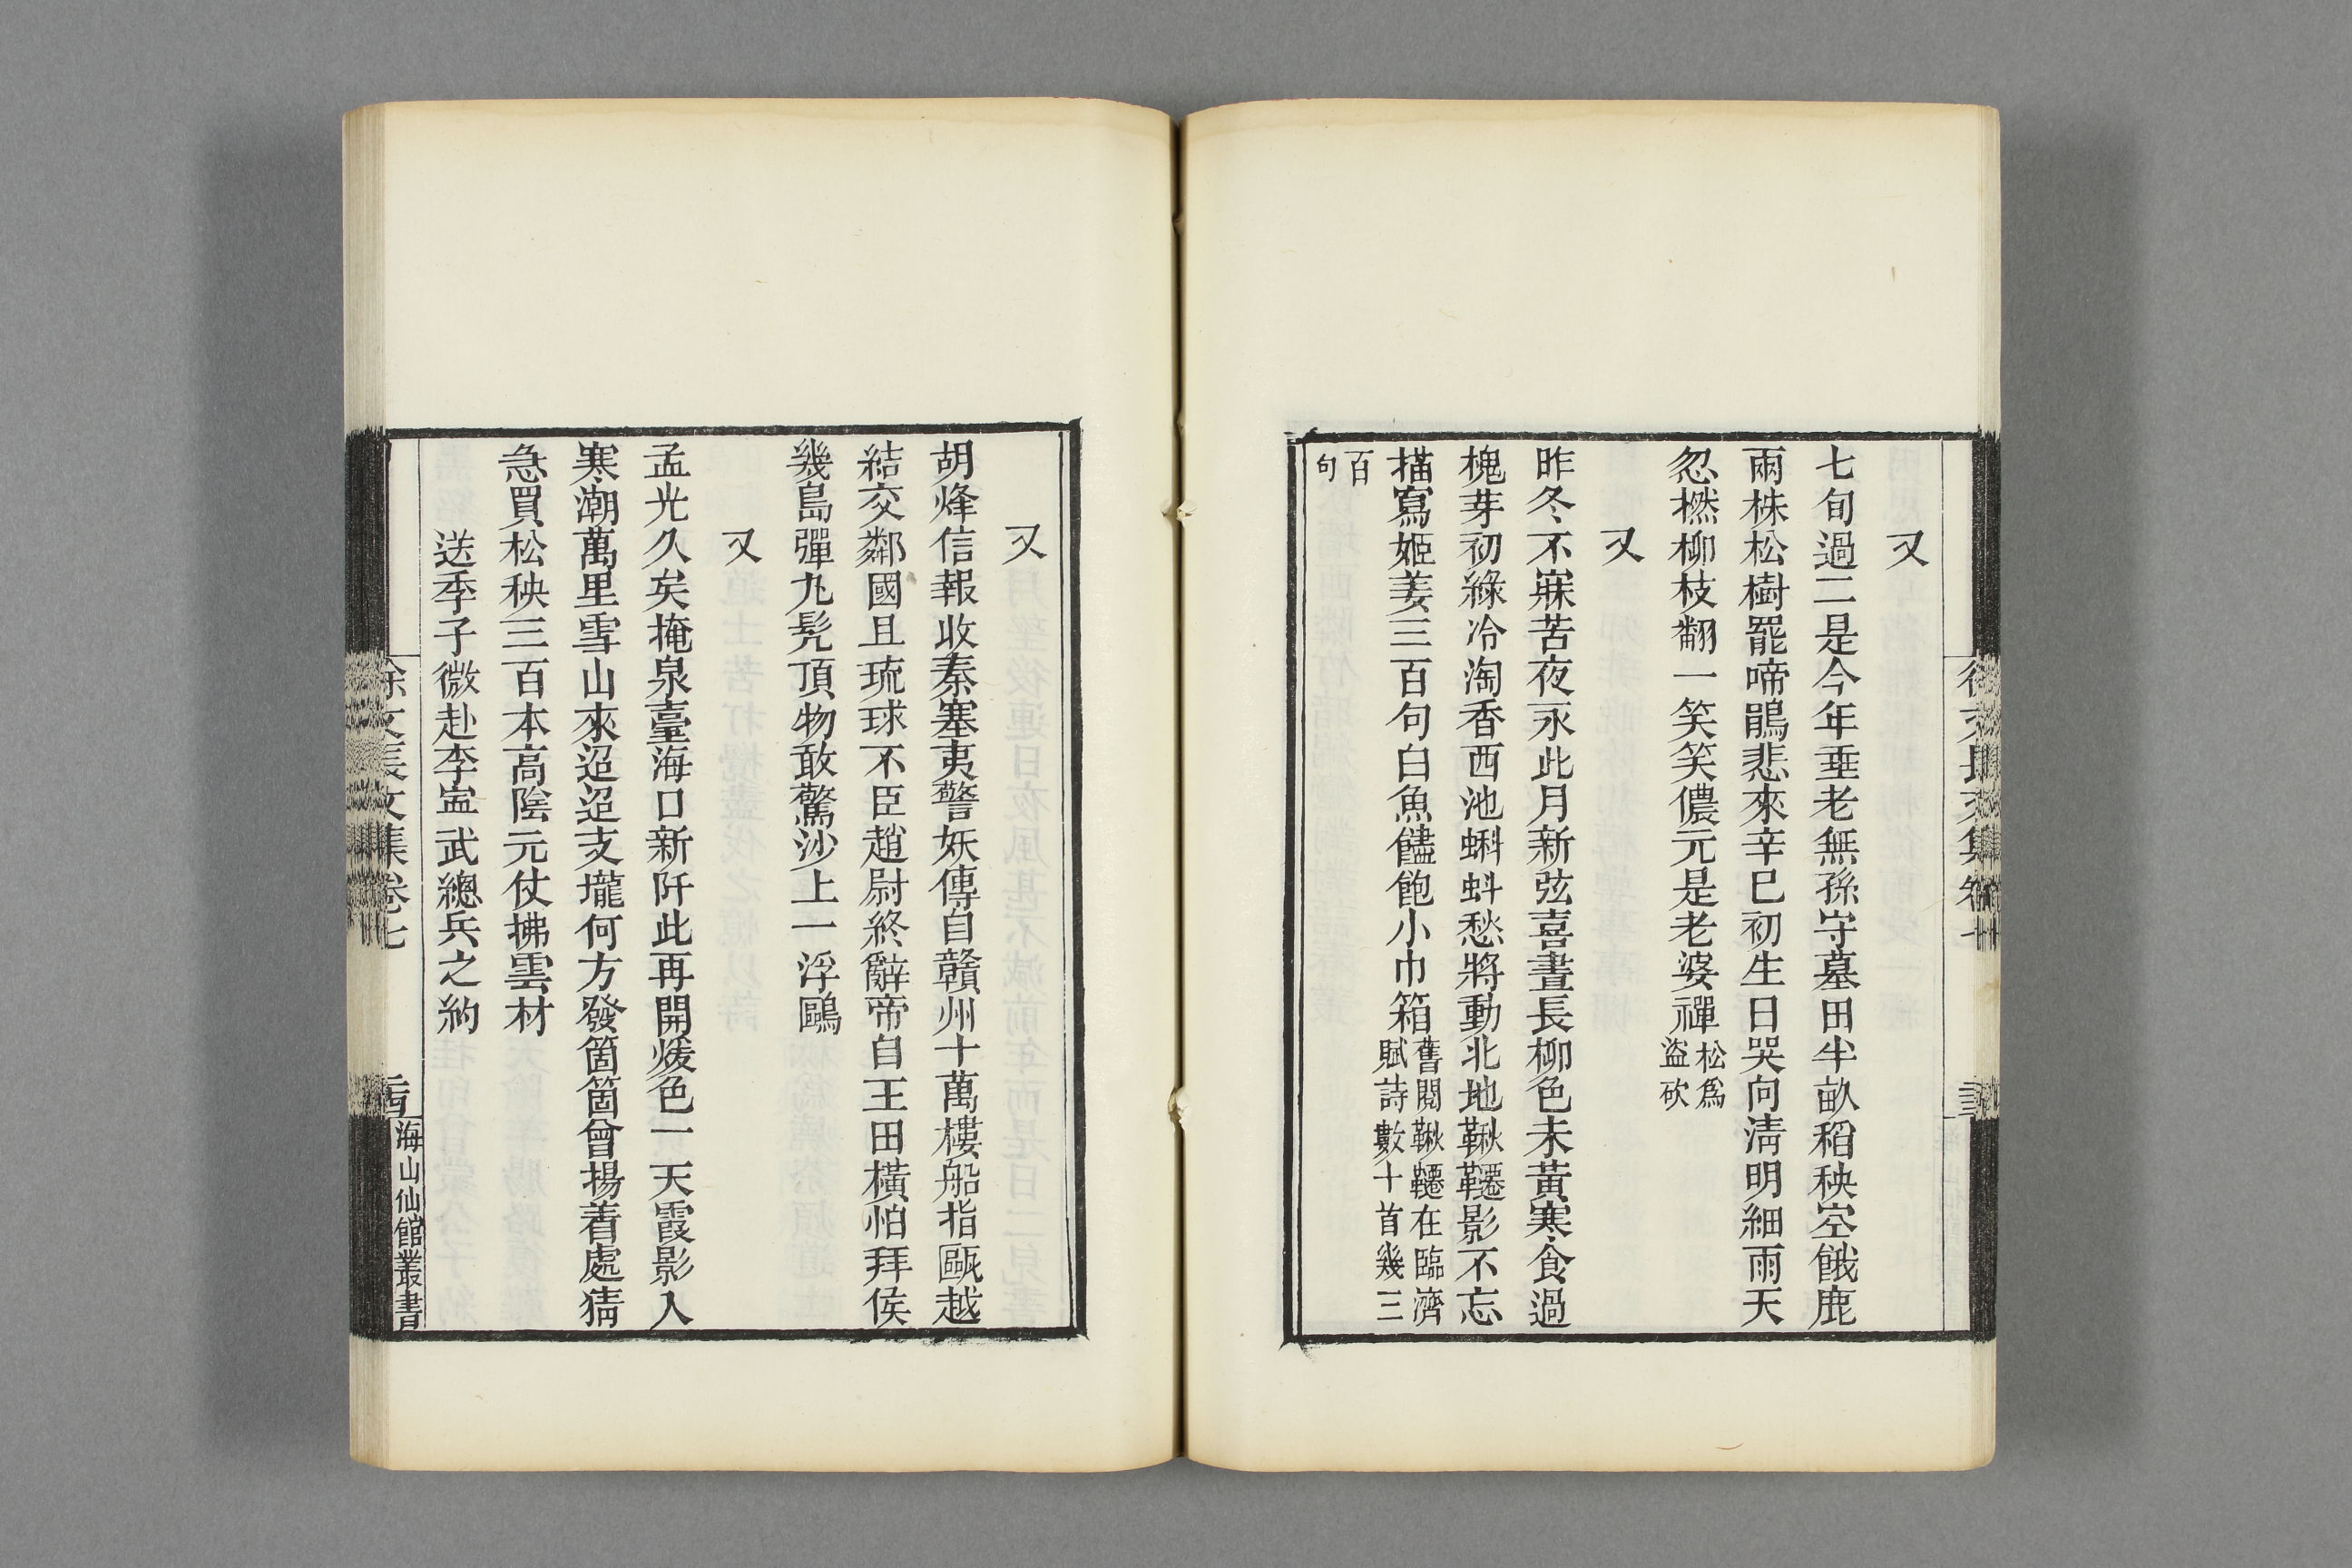 又
七旬過二是今年垂老無孫守墓田半畝稻秧空餓鹿
兩株松樹罷啼鵑悲來辛巳初生日哭向清明細雨天
忽撚柳枝翻一笑笑儂元是老婆禪松爲
盜砍
又
昨冬不寐苦夜永此月新弦喜晝長柳色未黃寒食過
槐芽初綠冷淘香西池蝌蚪愁將動北地鞦韆影不忘
描寫姬姜三百句白魚饞飽小巾箱舊閱鞦韆在臨濟
賦詩數十首幾三
百
句
又
胡烽信報收秦塞夷警妖傳自贛州十萬樓船指甌越
結交鄰國且琉球不臣趙尉終辭帝自王田橫怕拜侯
幾島彈丸髠頂物敢驚沙上一浮鷗
又
孟光久矣掩泉臺海口新阡此再開煖色一天霞影入
寒潮萬里雪山來迢迢支壠何方發箇箇曾揚着處猜
急買松秧三百本高陰元仗拂雲材
送季子微赴李寍武總兵之約
徐文長文集卷七
海山仙館叢書